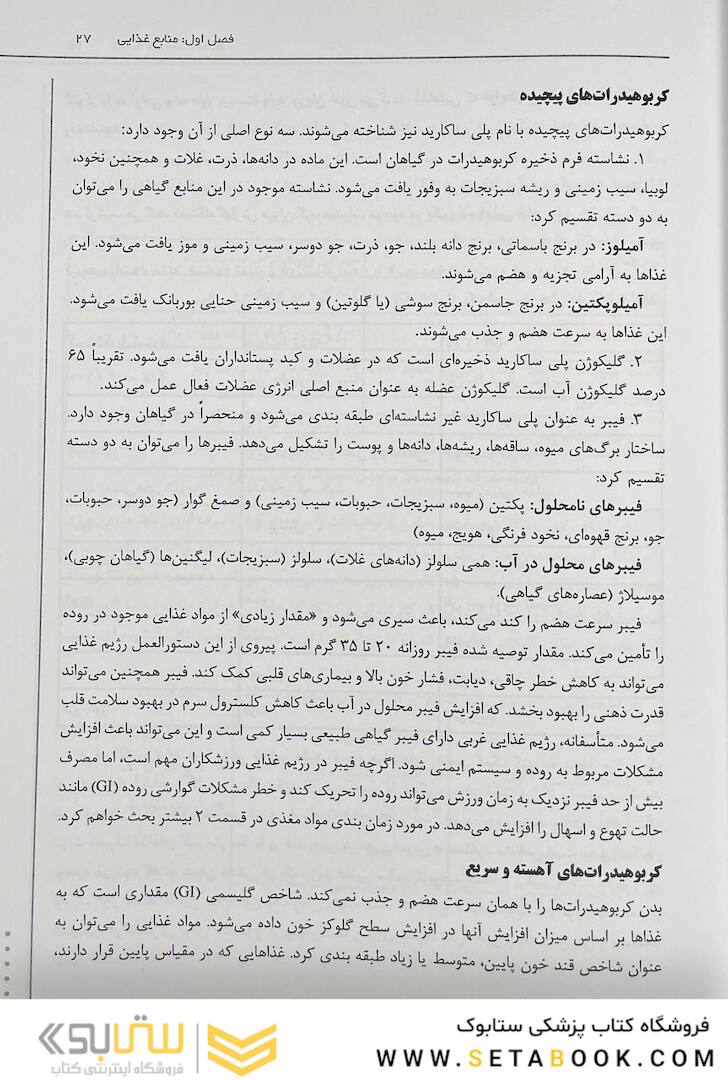 فصل اول: منابع غذایی ۲۷
کربوهیدرات‌های پیچیده
کربوهیدرات‌های پیچیده با نام پلی ساکارید نیز شناخته می‌شوند. سه نوع اصلی از آن وجود دارد:
۱. نشاسته فرم ذخیره کربوهیدرات در گیاهان است. این ماده در دانه‌ها، ذرت، غلات و همچنین نخود،
لوبیا، سیب زمینی و ریشه سبزیجات به وفور یافت می‌شود. نشاسته موجود در این منابع گیاهی را می‌توان
به دو دسته تقسیم کرد:
آمیلوز: در برنج باسماتی، برنج دانه بلند، جو، ذرت، جو دوسر، سیب زمینی و موز یافت می‌شود. این
غذاها به آرامی تجزیه و هضم می‌شوند.
آمیلوپکتین: در برنج جاسمن، برنج سوشی (یا گلوتین) و سیب زمینی حنایی بوربانک یافت می‌شود.
این غذاها به سرعت هضم و جذب می‌شوند.
۲. گلیکوژن پلی ساکارید ذخیره‌ای است که در عضلات و کبد پستانداران یافت می‌شود. تقریباً ۶۵
درصد گلیکوژن آب است. گلیکوژن عضله به عنوان منبع اصلی انرژی عضلات فعال عمل می‌کند.
۳. فیبر به عنوان پلی ساکارید غیر نشاسته‌ای طبقه بندی می‌شود و منحصراً در گیاهان وجود دارد.
ساختار برگ‌های میوه، ساقه‌ها، ریشه‌ها، دانه‌ها و پوست را تشکیل می‌دهد. فیبرها را می‌توان به دو دسته
تقسیم کرد:
فیبرهای نامحلول: پکتین (میوه، سبزیجات، حبوبات، سیب زمینی) و صمغ گوار (جو دوسر، حبوبات،
جو، برنج قهوه‌ای، نخود فرنگی، هویج، میوه)
فیبرهای محلول در آب: همی سلولز (دانه‌های غلات)، سلولز (سبزیجات)، لیگنین‌ها (گیاهان چوبی)،
موسیلاژ (عصاره‌های گیاهی).
فیبر سرعت هضم را کند می‌کند، باعث سیری می‌شود و «مقدار زیادی» از مواد غذایی موجود در روده
را تأمین می‌کند. مقدار توصیه شده فیبر روزانه ۲۰ تا ۳۵ گرم است. پیروی از این دستورالعمل رژیم غذایی
می‌تواند به کاهش خطر چاقی، دیابت، فشار خون بالا و بیماری‌های قلبی کمک کند. فیبر همچنین می‌تواند
قدرت ذهنی را بهبود بخشد. که افزایش فیبر محلول در آب باعث کاهش کلسترول سرم در بهبود سلامت قلب
می‌شود. متأسفانه، رژیم غذایی غربی دارای فیبر گیاهی طبیعی بسیار کمی است و این می‌تواند باعث افزایش
مشکلات مربوط به روده و سیستم ایمنی شود. اگرچه فیبر در رژیم غذایی ورزشکاران مهم است، اما مصرف
بیش از حد فیبر نزدیک به زمان ورزش می‌تواند روده را تحریک کند و خطر مشکلات گوارشی روده (GI) مانند
حالت تهوع و اسهال را افزایش می‌دهد. در مورد زمان بندی مواد مغذی در قسمت ۲ بیشتر بحث خواهم کرد.
کربوهیدرات‌های آهسته و سریع
بدن کربوهیدرات‌ها را با همان سرعت هضم و جذب نمی‌کند. شاخص گلیسمی (GI) مقداری است که به
غذاها بر اساس میزان افزایش آنها در افزایش سطح گلوکز خون داده می‌شود. مواد غذایی را می‌توان به
عنوان شاخص قند خون پایین، متوسط یا زیاد طبقه بندی کرد. غذاهایی که در مقیاس پایین قرار دارند،
فروشگاه کتاب پزشکی ستابوک
WWW.SETABOOK.COM
ستابوک
فروشگاه اینترنتی کتاب